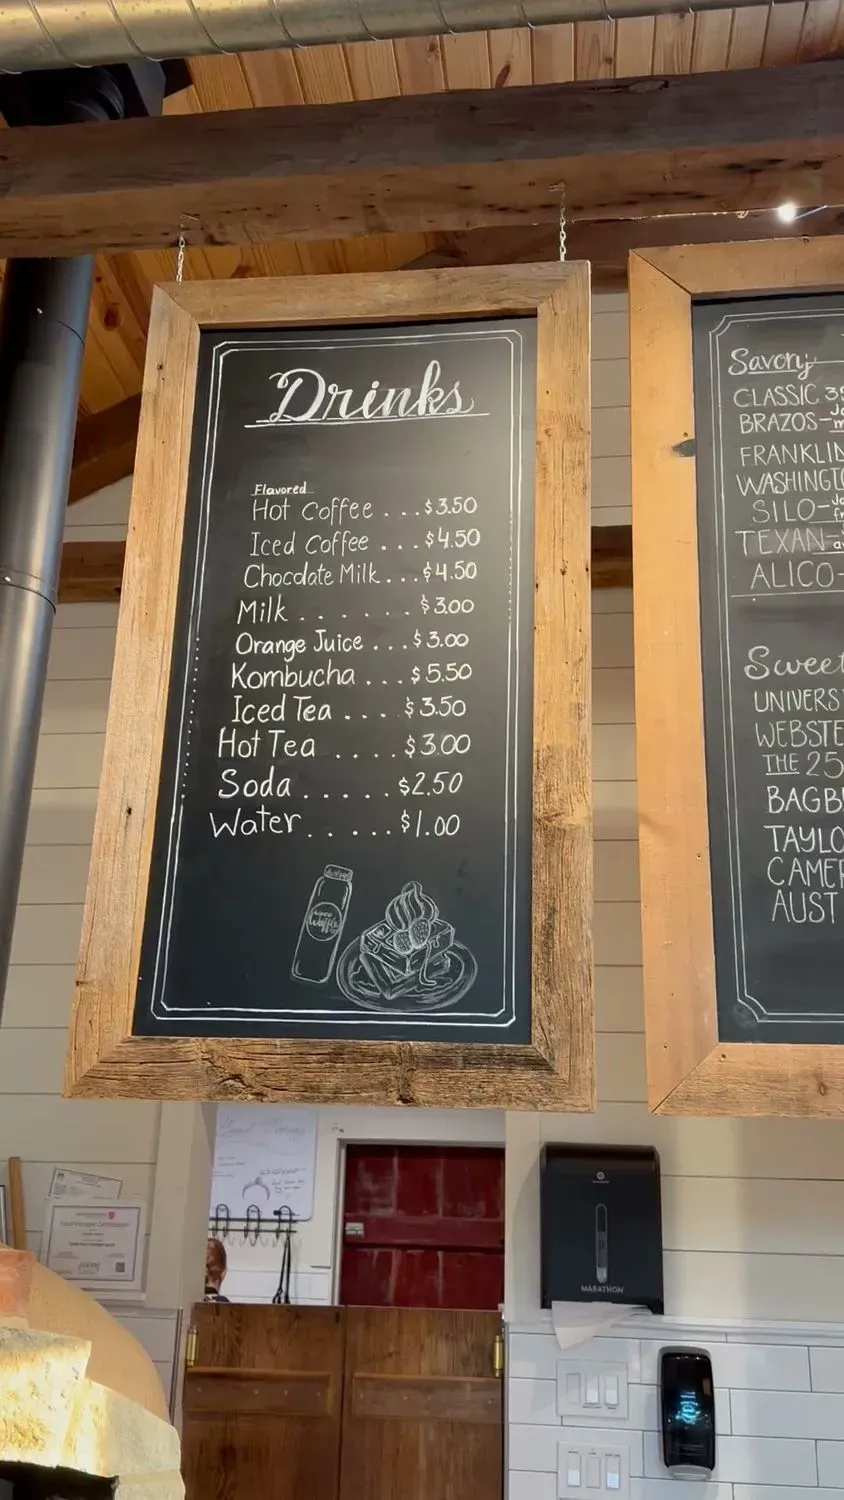 Drinks
Flavored
Hot Coffee ... $3.50
Iced Coffee ... $4.50
Chocolate Milk ... $4.50
Milk . . . . . . $3.00
Orange Juice ... $3.00
Kombucha ... $5.50
Iced Tea .... $3.50
Hot Tea .... $3.00
Soda ..... $2.50
Water ..... $1.00
Waffle
Savory
CLASSIC
BRAZOS-
FRANKLIN
WASHINGTO
SILO-
TEXAN-
ALICO-
Sweet
UNIVERS
WEBSTE
THE 25
BAGB
TAYLO
CAMER
AUST
MARATHON